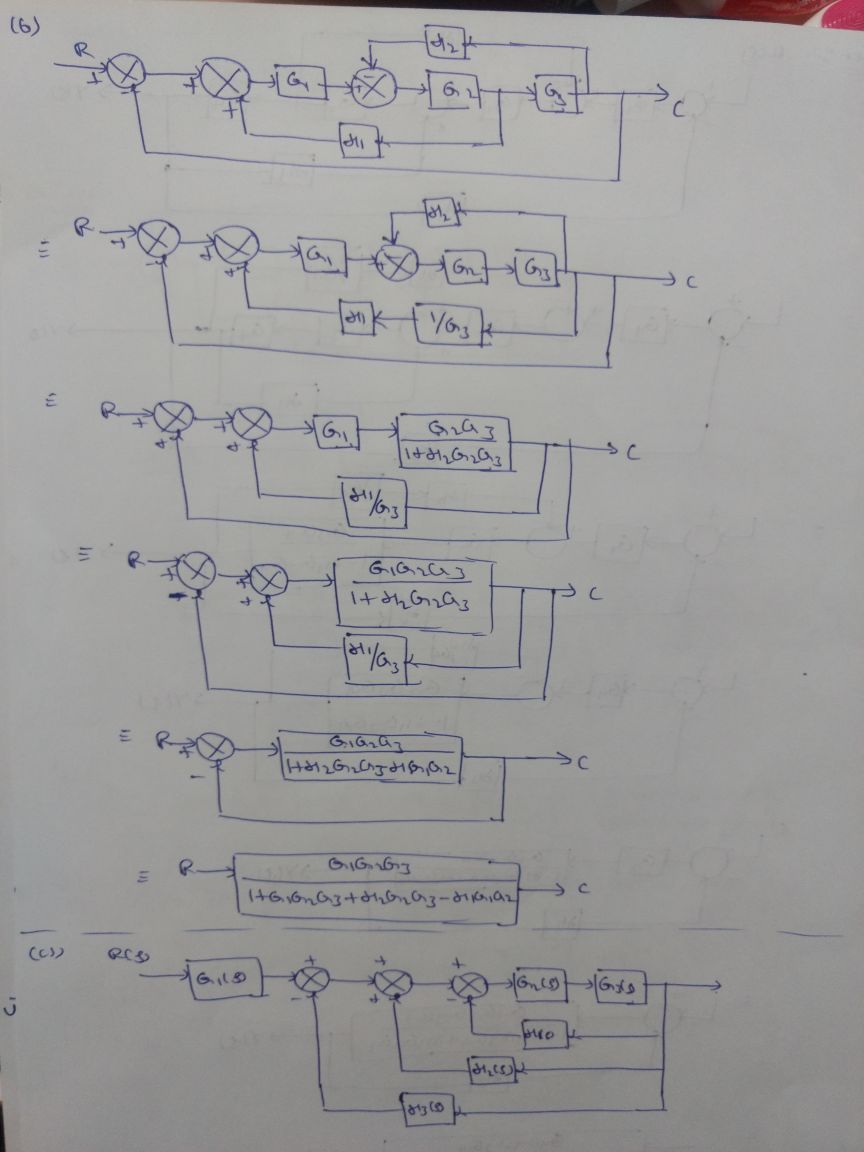 (b)
H2
R + - + + G1 + - G2 G3 C
H1
H2
≡ R + - + + G1 + - G2 G3 C
H1 1/G3
≡ R + + + + G1 G2G3 C
1+H2G2G3
H1/G3
≡ R + - + + G1G2G3 C
1+H2G2G3
H1/G3
≡ R + - G1G2G3 C
1+H2G2G3-H1G1G2
≡ R G1G2G3 C
1+G1G2G3+H2G2G3-H1G1G2
(c) R(s) G1(s) + - + + + - G2(s) G3(s)
H2(s)
H3(s)